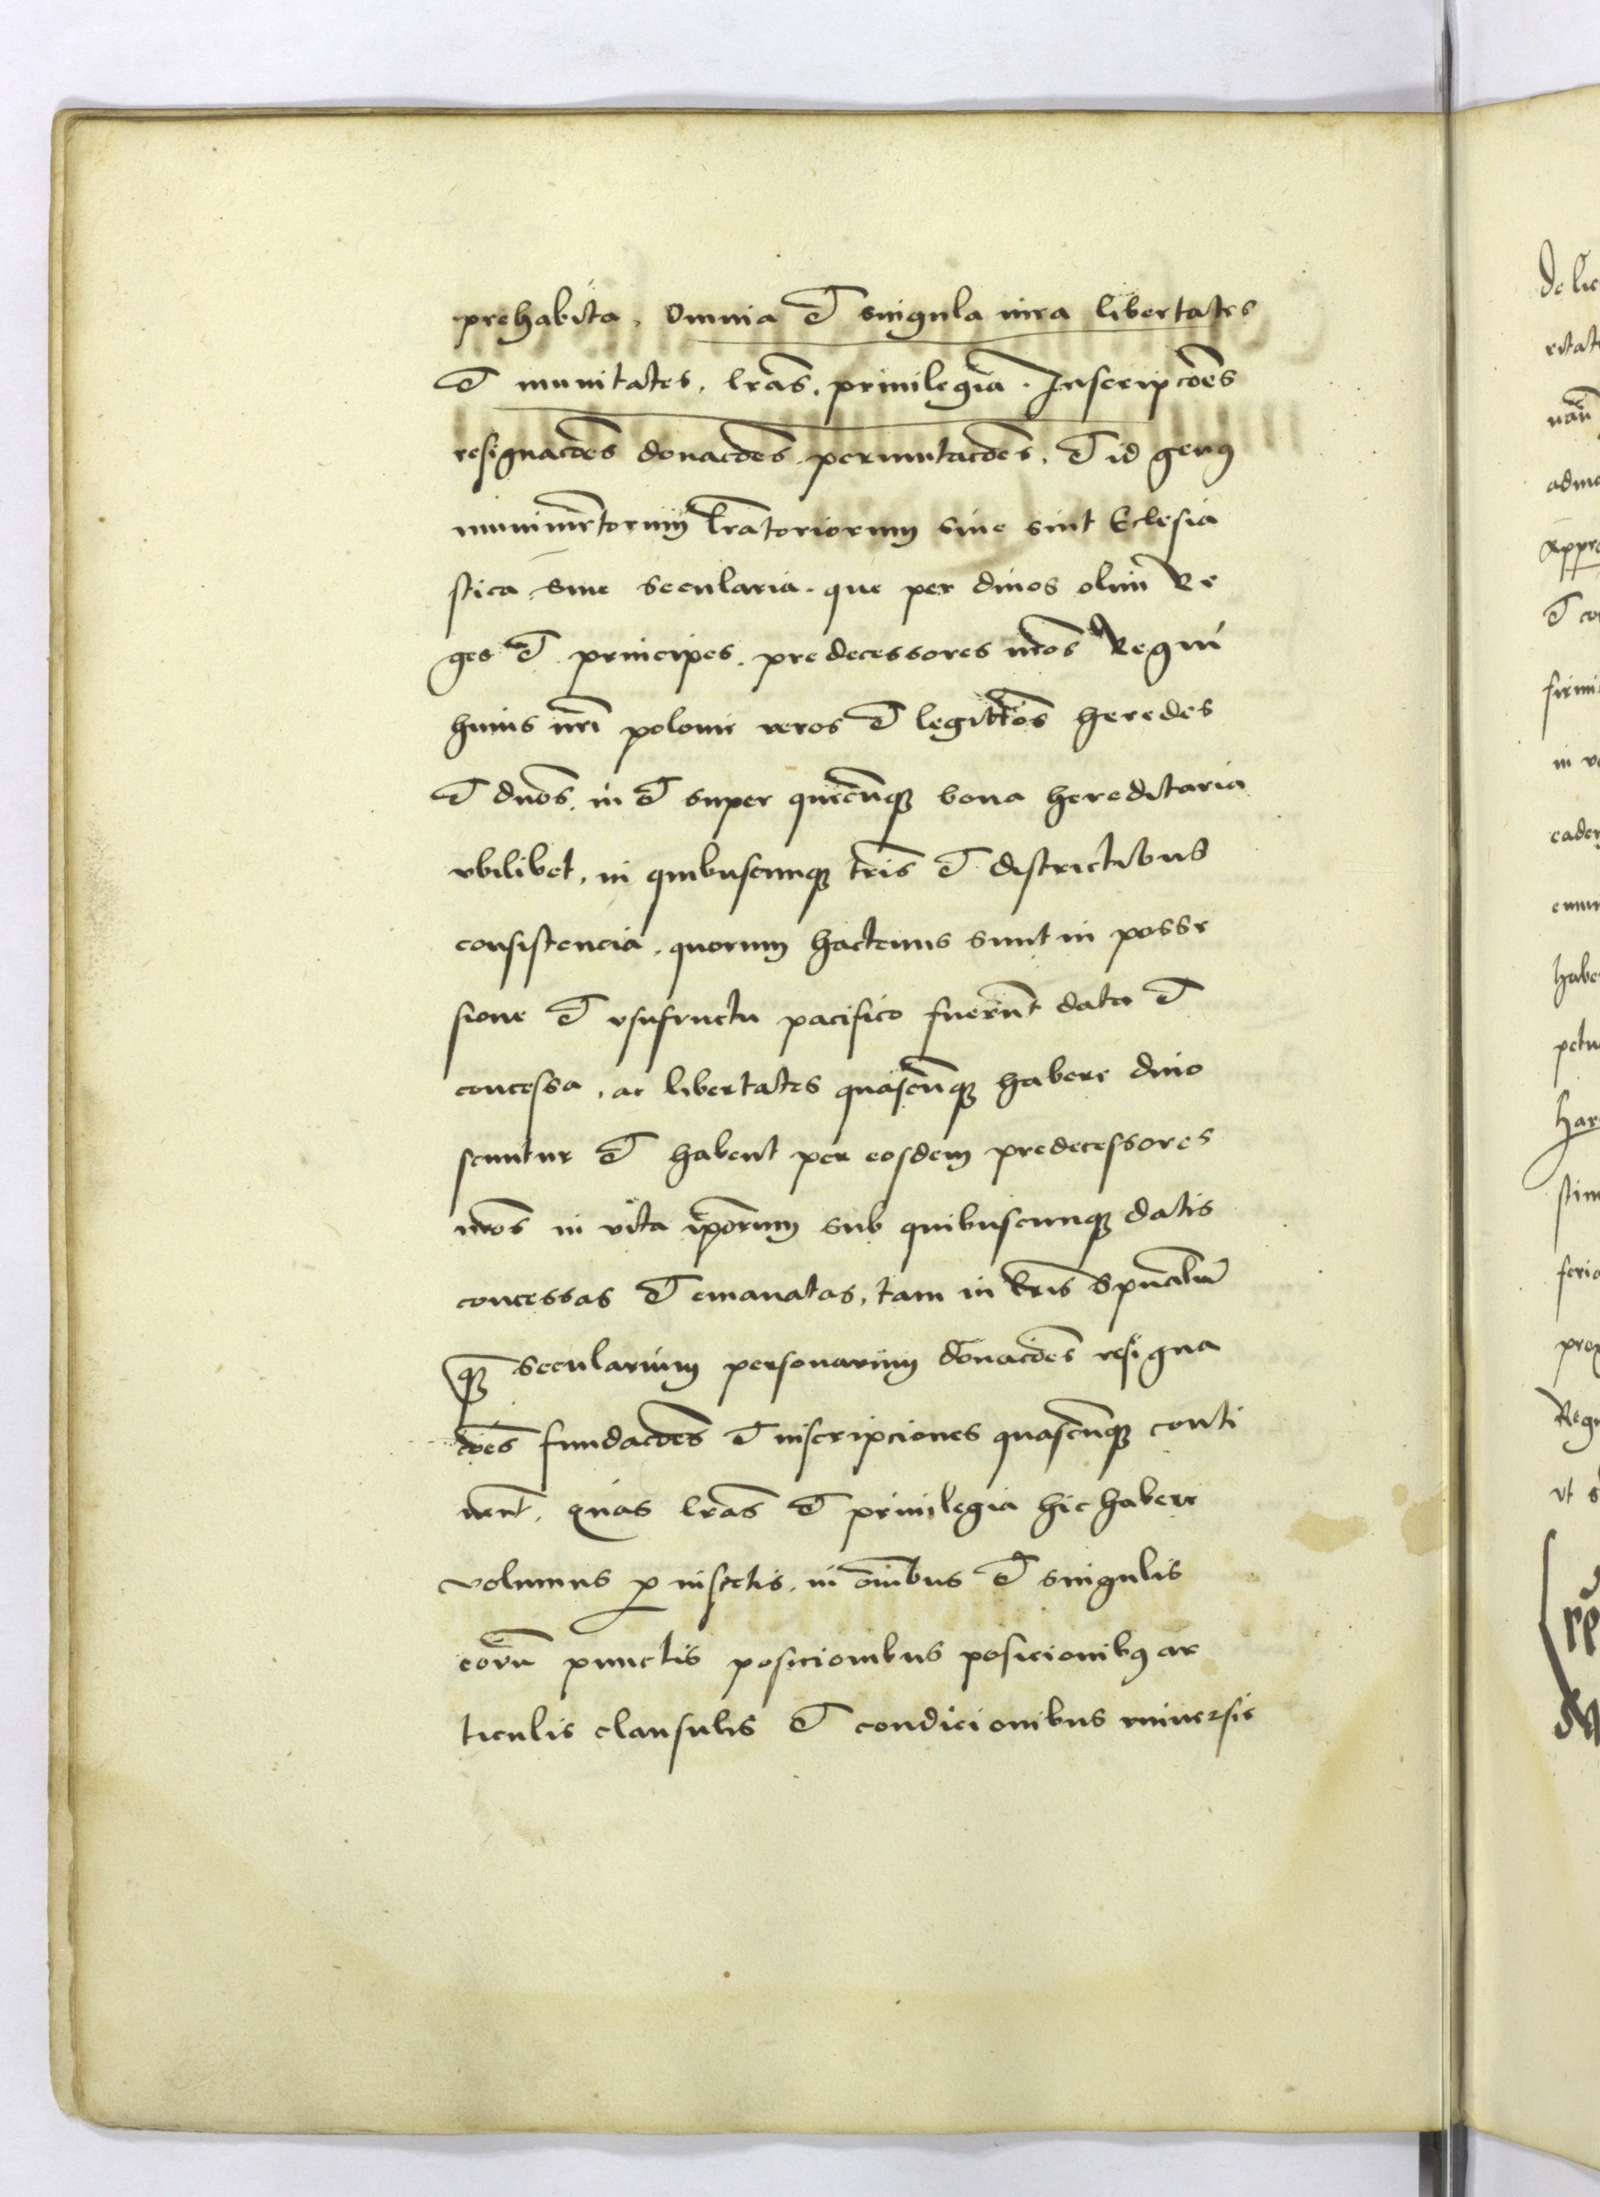 prehabita, Omnia et singula iura libertates
et munitates, lras, priuilegia. Inscripcões
resignacões donacões permutacões, et id genus
munimentorum lratoriorum siue sint Eclesia
stica siue secularia. que per diuos olim Re
ges et principes. predecessores nros Regni
huius nri polonie veros et legittios heredes
et dnos, in et super quecunque bona hereditaria
vbilibet, in quibuscunque tris et districtibus
consistencia, quorum hactenus sunt in posse
sione et vsufructu pacifico fuerunt data et
concessa, ac libertates quascunque habere dino
scuntur et habent per eosdem predecessores
nros in vita ipsorum sub quibuscunque datis
concessas et emanatas, tam in lris Spualiu
q̃ secularium personarum donacões resigna
cões fundacões et inscripciones quascunque conti
nent, quas lras et priuilegia hic habere
volumus p insertis, in omibus et singulis
eoru punctis posicionibus posicionibus ar
ticulis clausulis et condicionibus vniuersis
de lic
ritat
adm
Appro
et co
firmi
in v
eader
habe
petu
Har
stim
feria
prox
Regn
vt s